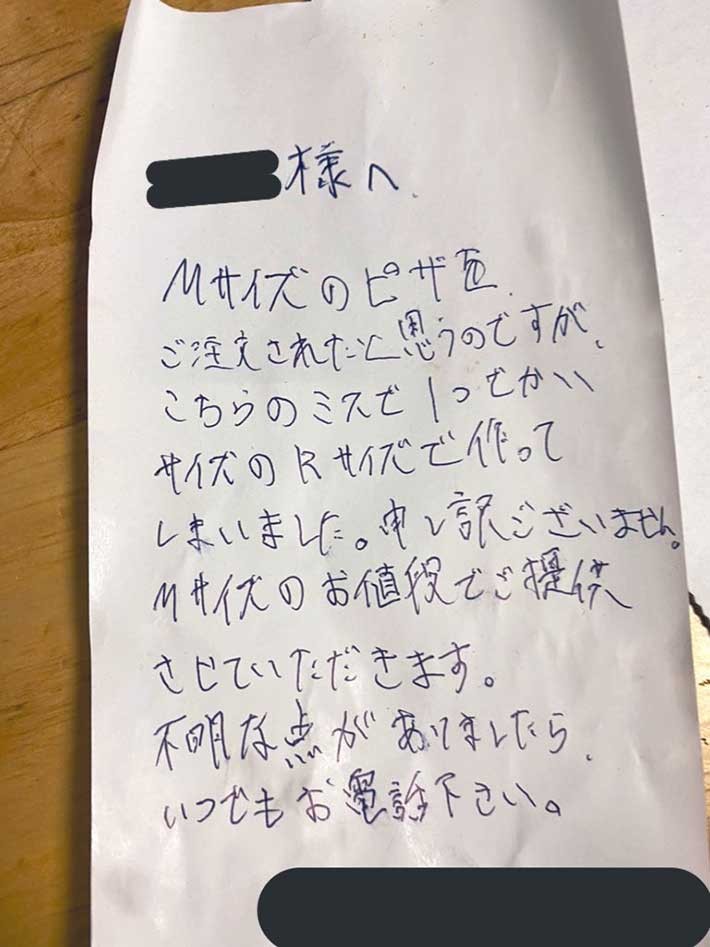 様へ
Mサイズのピザを
ご注文されたと思うのですが、
こちらのミスで1つでかい
サイズのRサイズで作って
しまいました。申し訳ございません。
Mサイズのお値段でご提供
させていただきます。
不明な点がありましたら、
いつでもお電話下さい。